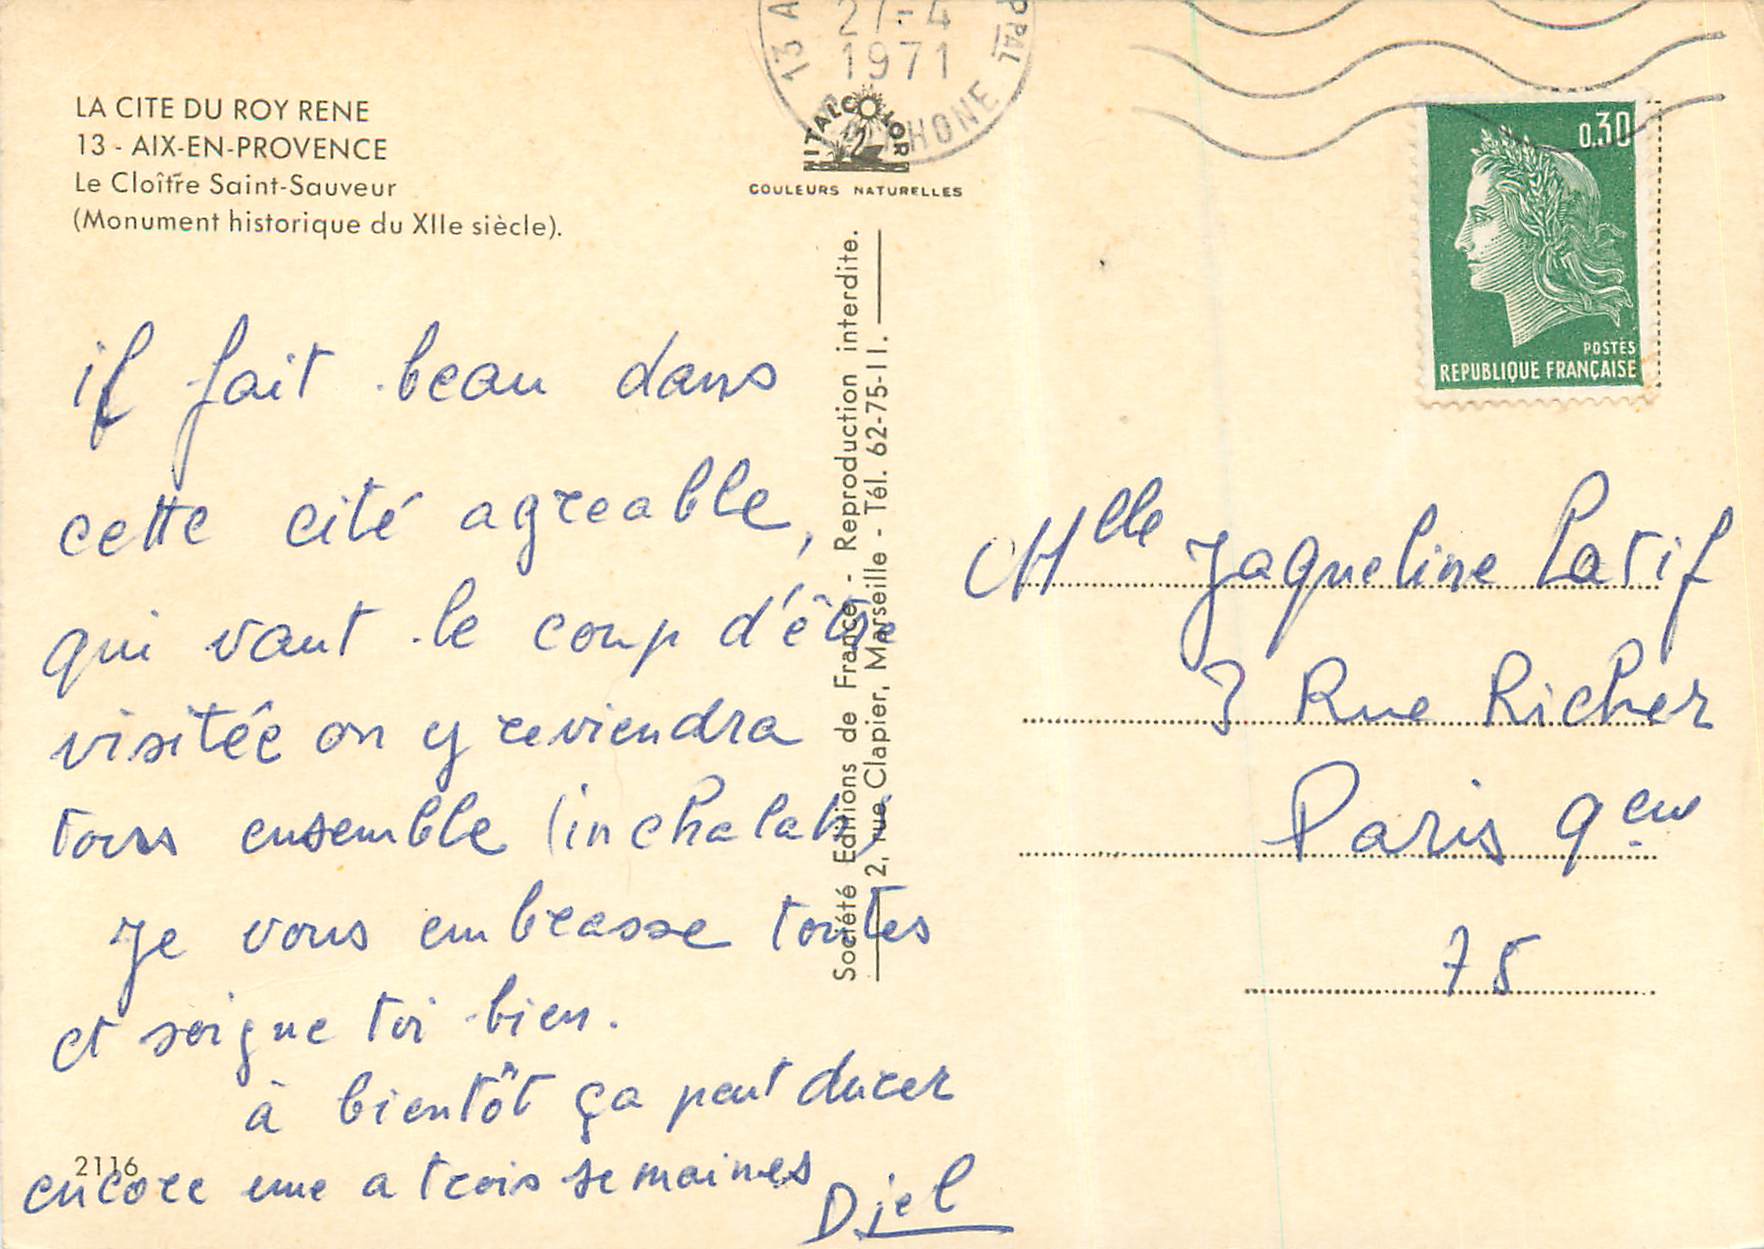 LA CITE DU ROY RENE
13 - AIX-EN-PROVENCE
Le Cloître Saint-Sauveur
(Monument historique du XIIe siècle).
il fait beau dans
cette cité agreable,
qui vaut le coup d'être
visitée on y reviendra
tous ensemble (inchalah)
Je vous embrasse toutes
et soigne toi bien.
à bientôt ça peut durer
encore une a trois semaines
Djel
2116
13 A
27-4
1971
RHONE
PPAL
ITALCOLOR
COULEURS NATURELLES
Société Editions de France - Reproduction interdite.
2, rue Clapier, Marseille - Tél. 62-75-11.
0.30
POSTES
REPUBLIQUE FRANÇAISE
Mlle Jaqueline Latif
3 Rue Richer
Paris 9eme
75